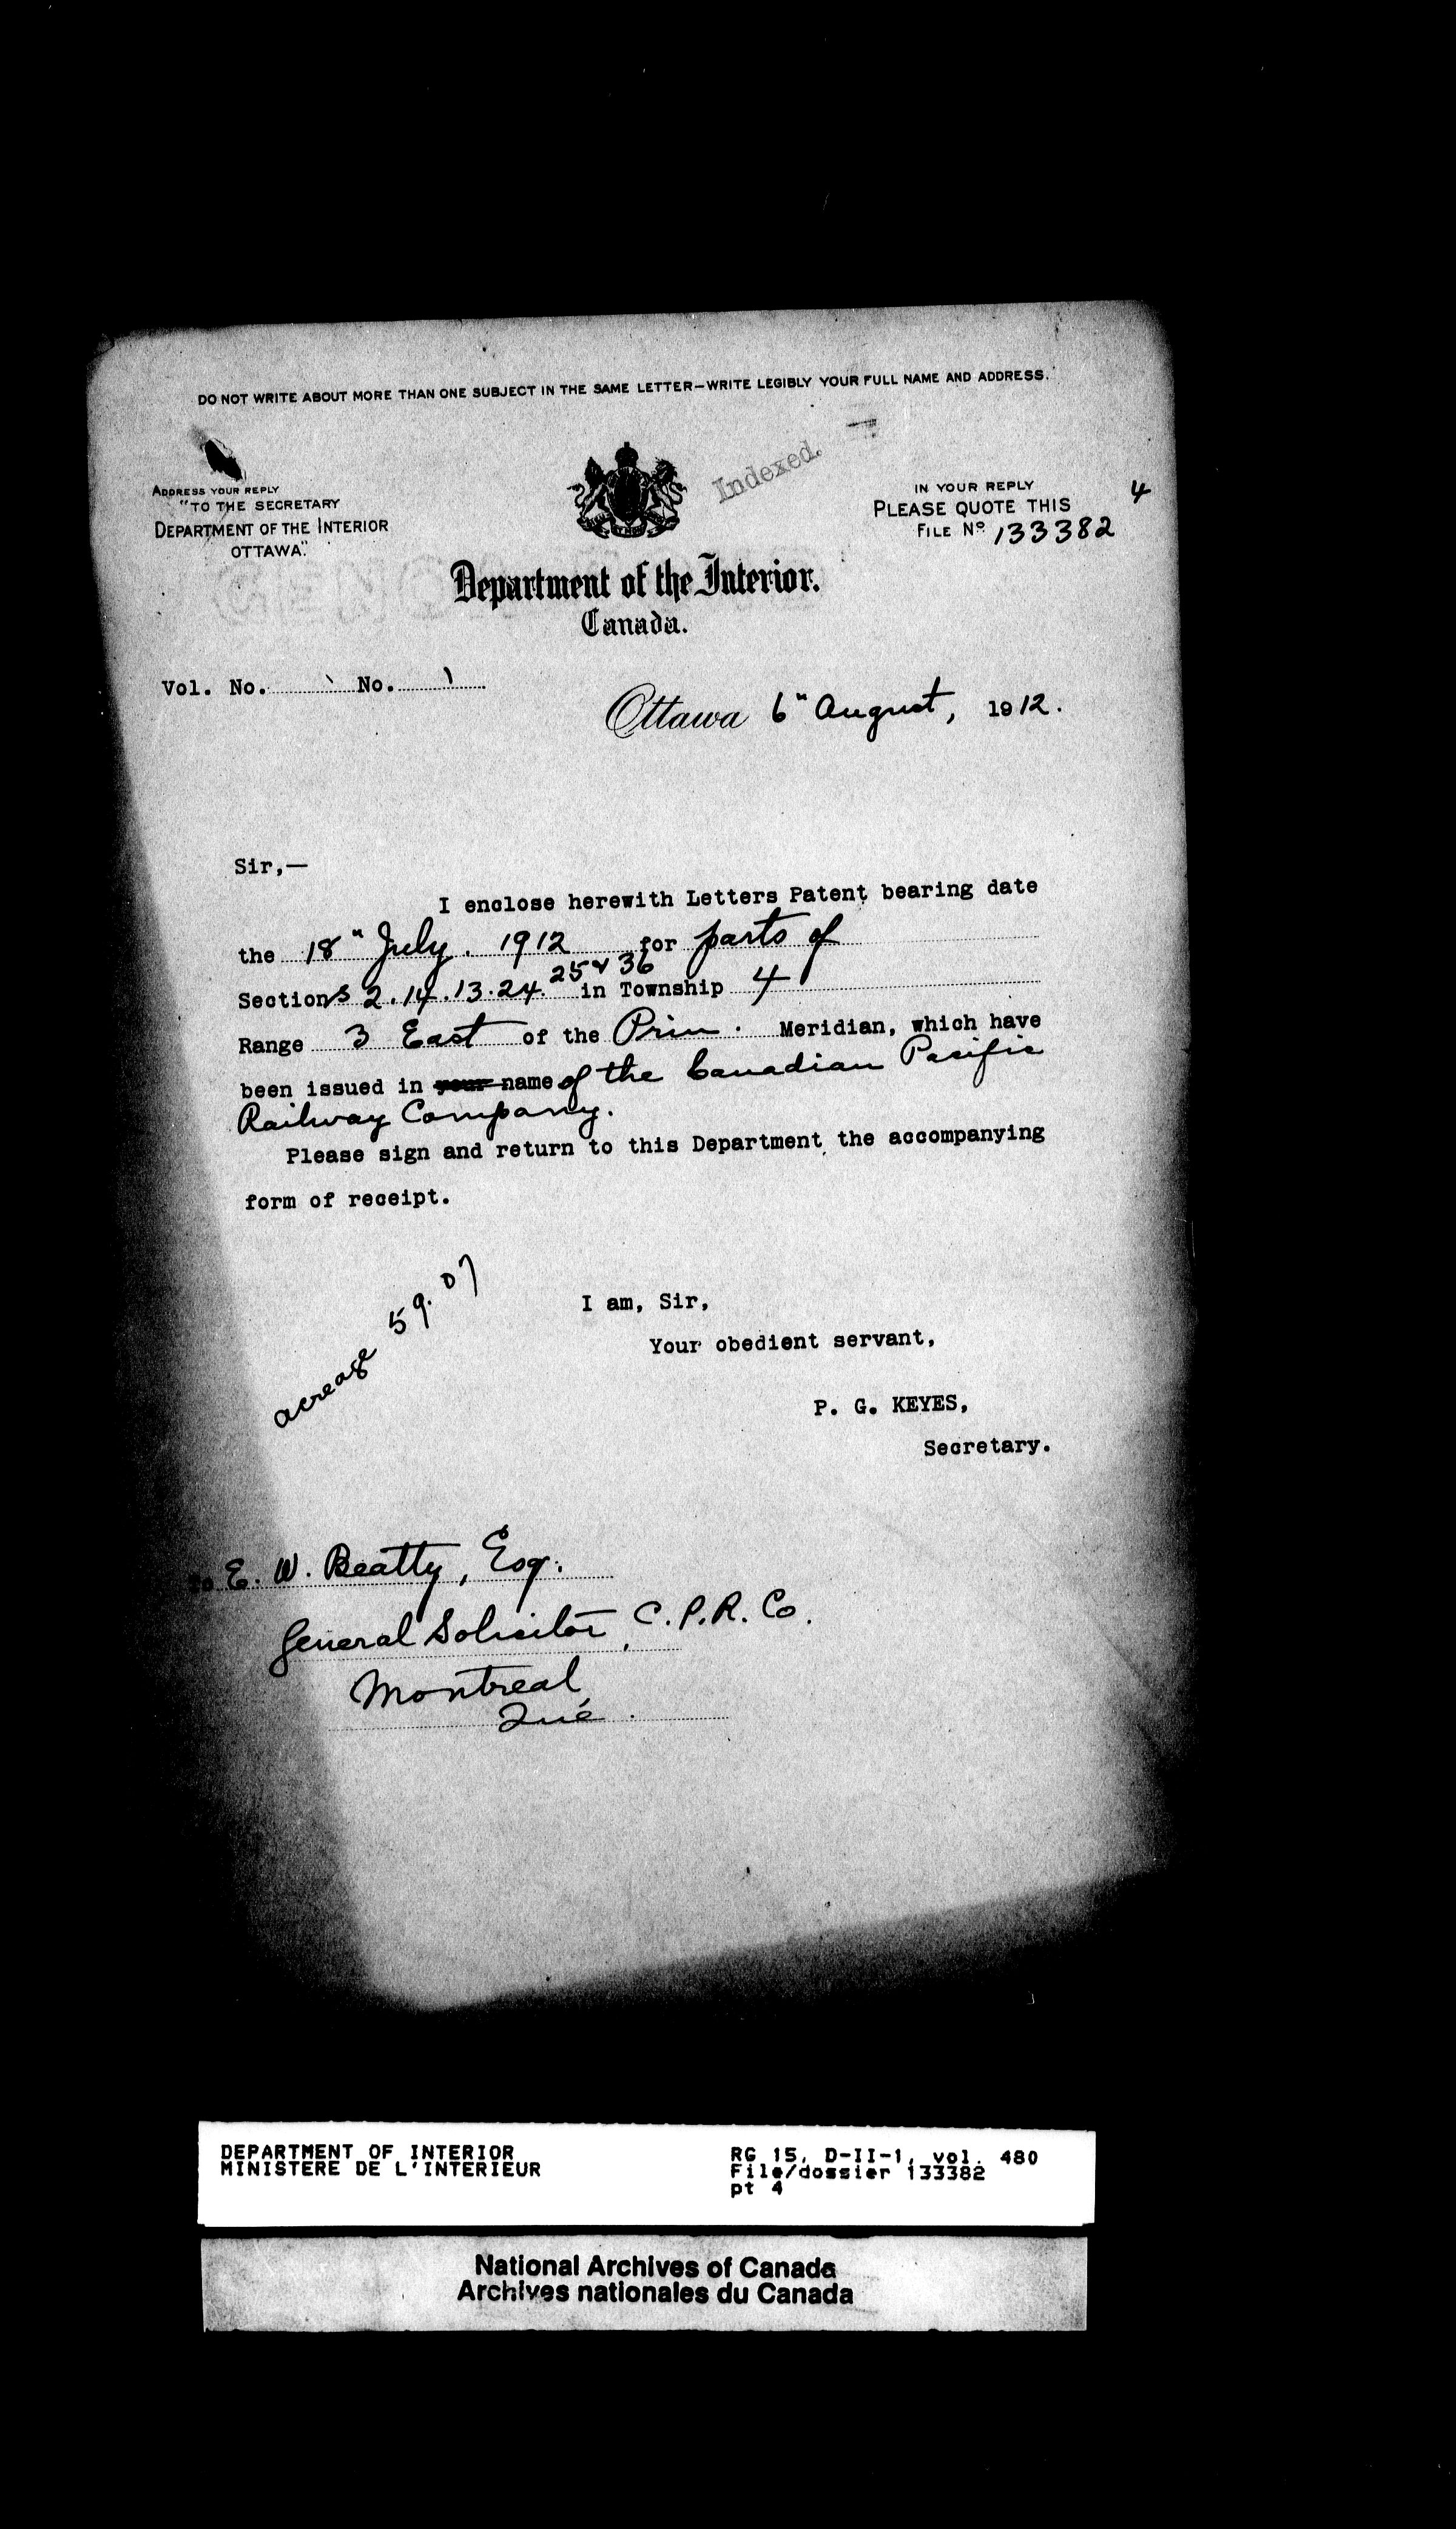 DO NOT WRITE ABOUT MORE THAN ONE SUBJECT IN THE SAME LETTER—WRITE LEGIBLY YOUR FULL NAME AND ADDRESS.
Indexed.
ADDRESS YOUR REPLY
"TO THE SECRETARY
DEPARTMENT OF THE INTERIOR
OTTAWA."
IN YOUR REPLY
PLEASE QUOTE THIS
FILE No 133382
4
Department of the Interior.
Canada.
Vol. No. No. 1
Ottawa 6" August, 1912.
Sir,—
I enclose herewith Letters Patent bearing date
the 18" July. 1912 for parts of
25 & 36
Sections 2.14.13.24. in Township 4
Range 3 East of the Prin. Meridian, which have
been issued in your name of the Canadian Pacific
Railway Company.
Please sign and return to this Department the accompanying
form of receipt.
acreage 59.07
I am, Sir,
Your obedient servant,
P. G. KEYES,
Secretary.
To E. W. Beatty, Esq.
General Solicitor, C.P.R. Co.
Montreal,
Qué.
DEPARTMENT OF INTERIOR
MINISTERE DE L'INTERIEUR
RG 15, D-II-1, vol. 480
File/dossier 133382
pt 4
National Archives of Canada
Archives nationales du Canada